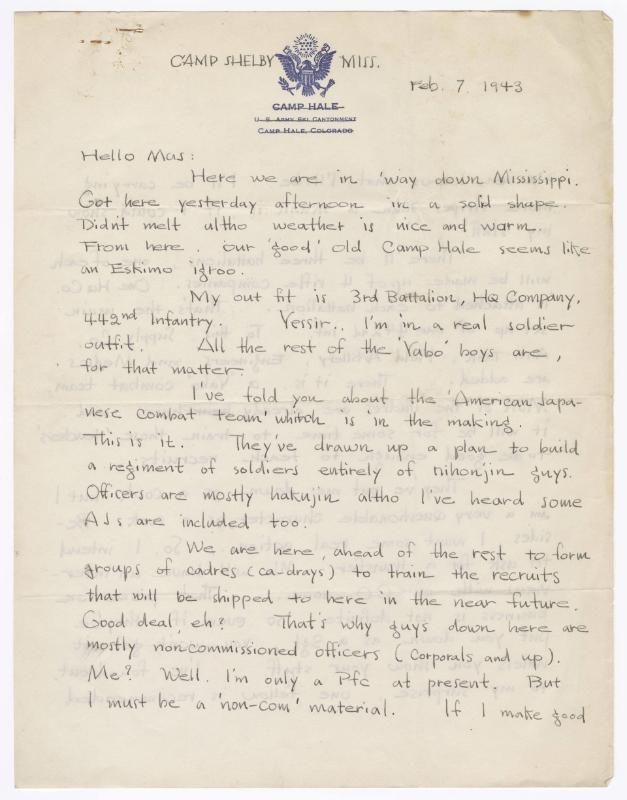 CAMP SHELBY MISS.
Feb. 7. 1943
CAMP HALE
U. S. ARMY SKI CANTONMENT
CAMP HALE, COLORADO
Hello Mas:
Here we are in 'way down Mississippi.
Got here yesterday afternoon in a solid shape.
Didn't melt altho weather is nice and warm.
From here, our 'good' old Camp Hale seems like
an Eskimo igroo.
My out fit is 3rd Battalion, HQ Company,
442nd Infantry. Yessir.. I'm in a real soldier
outfit. All the rest of the 'Yabo' boys are,
for that matter.
I've told you about the 'American Japa-
nese combat team' whitch is in the making.
This is it. They've drawn up a plan to build
a regiment of soldiers entirely of nihonjin guys.
Officers are mostly hakujin altho I've heard some
AJs are included too.
We are here, ahead of the rest to form
groups of cadres (ca-drays) to train the recruits
that will be shipped to here in the near future.
Good deal, eh? That's why guys down here are
mostly noncommissioned officers (Corporals and up).
Me? Well. I'm only a Pfc at present. But
I must be a 'non-com' material. If I make good